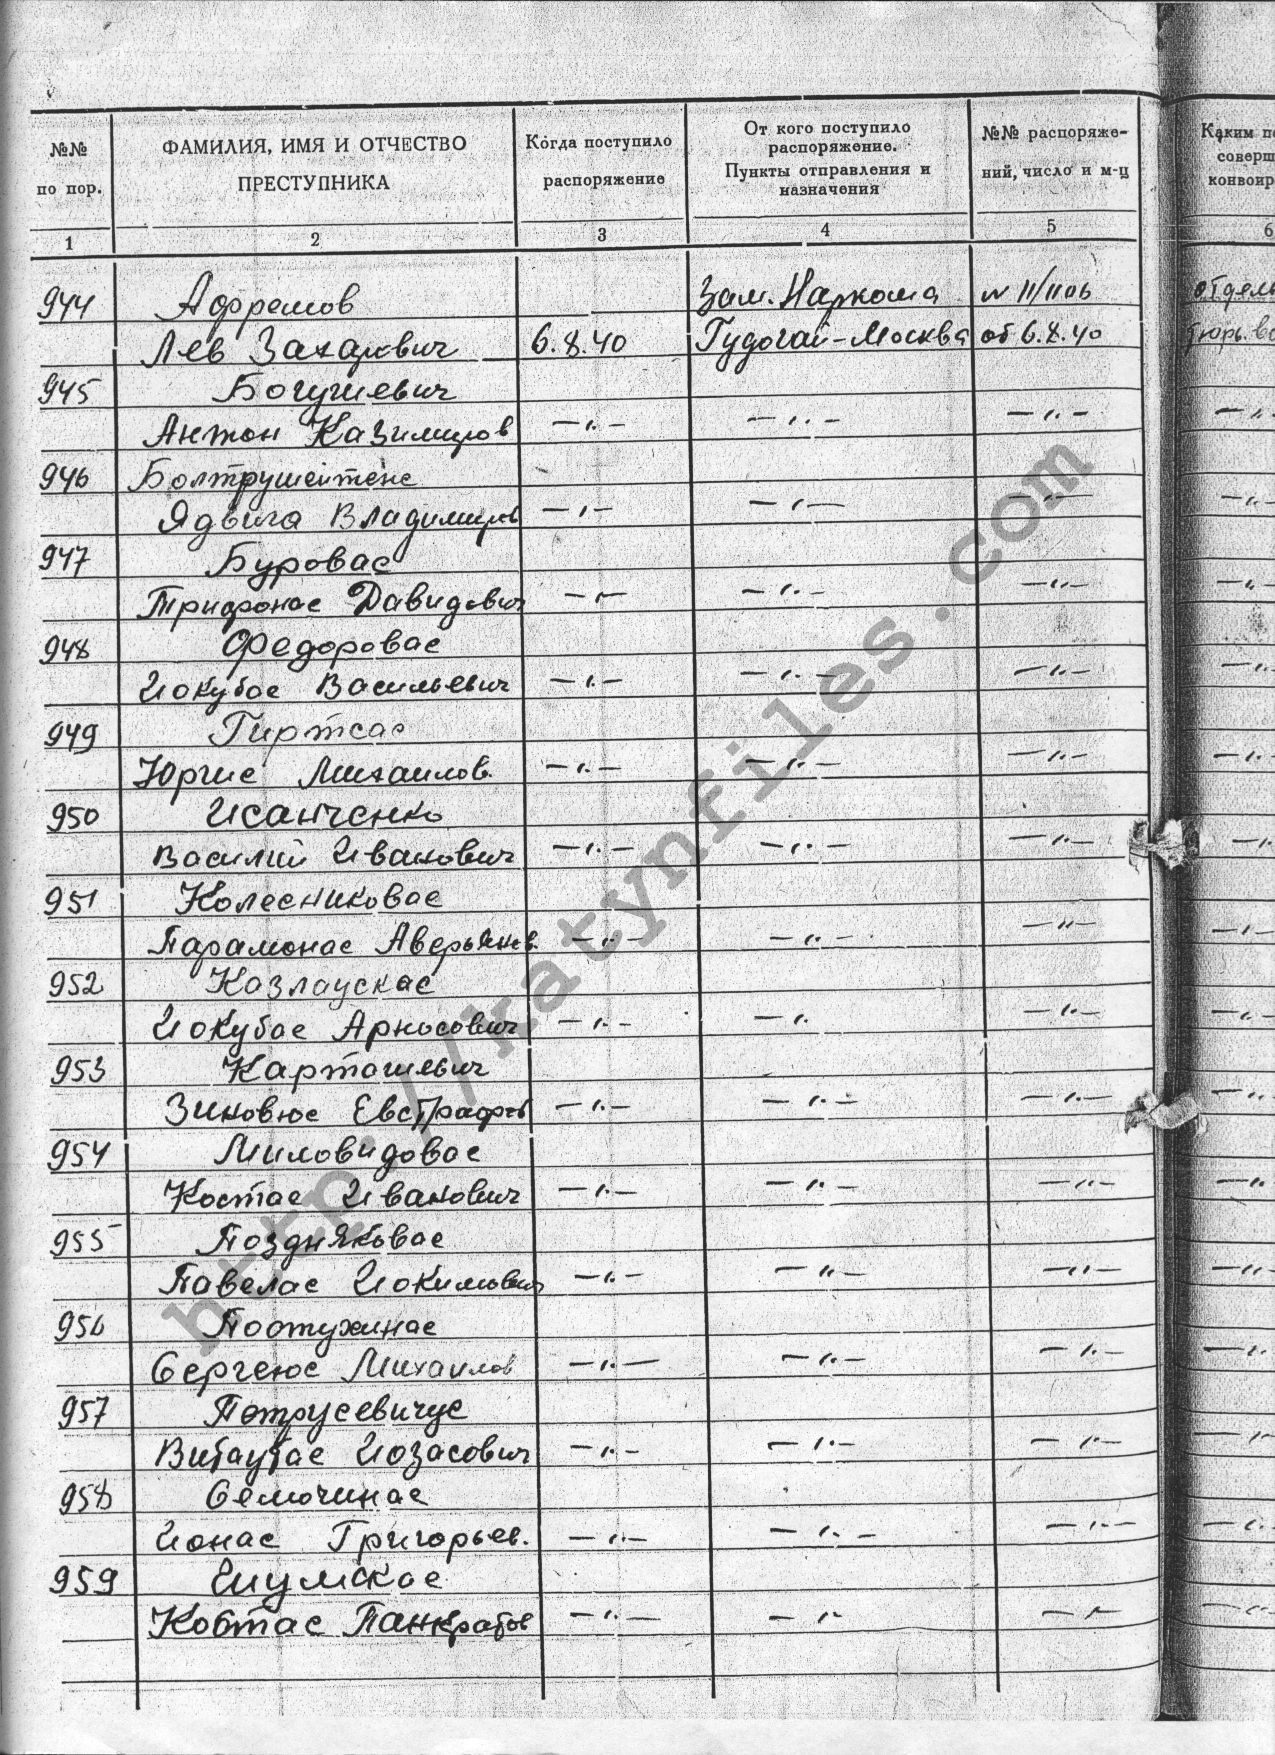 №№
по пор.
ФАМИЛИЯ, ИМЯ И ОТЧЕСТВО
ПРЕСТУПНИКА
Когда поступило
распоряжение
От кого поступило
распоряжение.
Пункты отправления и
назначения
№№ распоряже-
ний, число и м-ц
Каким по
соверш
конвоир
1 2 3 4 5 6
944 Афремов Зам. Наркома № 11/1106 отдель
Лев Захарович 6.8.40 Гудогай-Москва от 6.8.40 тюрь. ва
945 Богушевич
Антон Казимиров — " — — " — — " —
946 Болтрушейтене
Ядвига Владимиров — " — — " — — " — — " —
947 Буровас
Трифонас Давидович — " — — " — — " — — " —
948 Федоровас
Иокубас Васильевич — " — — " — — " — — " —
949 Гиртсас
Юргис Михаилов. — " — — " — — " — — " —
950 Исанченко
Василий Иванович — " — — " — — " — — " —
951 Колесниковас
Парамонас Аверьянов. — " — — " — — " — — " —
952 Казлаускас
Иокубас Арносович — " — — " — " — — " —
953 Карташевич
Зиновюс Евстрафов — " — — " — — " — — "
954 Миловидовас
Костас Иванович — " — — " — — " — — "
955 Поздняковас
Павелас Иокимович — " — — " — — " — — " —
956
Сергеюс Михаилов — " — — " — — " — — "
957 Петрусевичус
Витаутас Иозасович — " — — " — — " — — " —
958 Семочинас
Ионас Григорьев. — " — — " — — " — — " —
959 Шумскас
Костас Панкратов — " — — " — — " — — " —
http://katynfiles.com